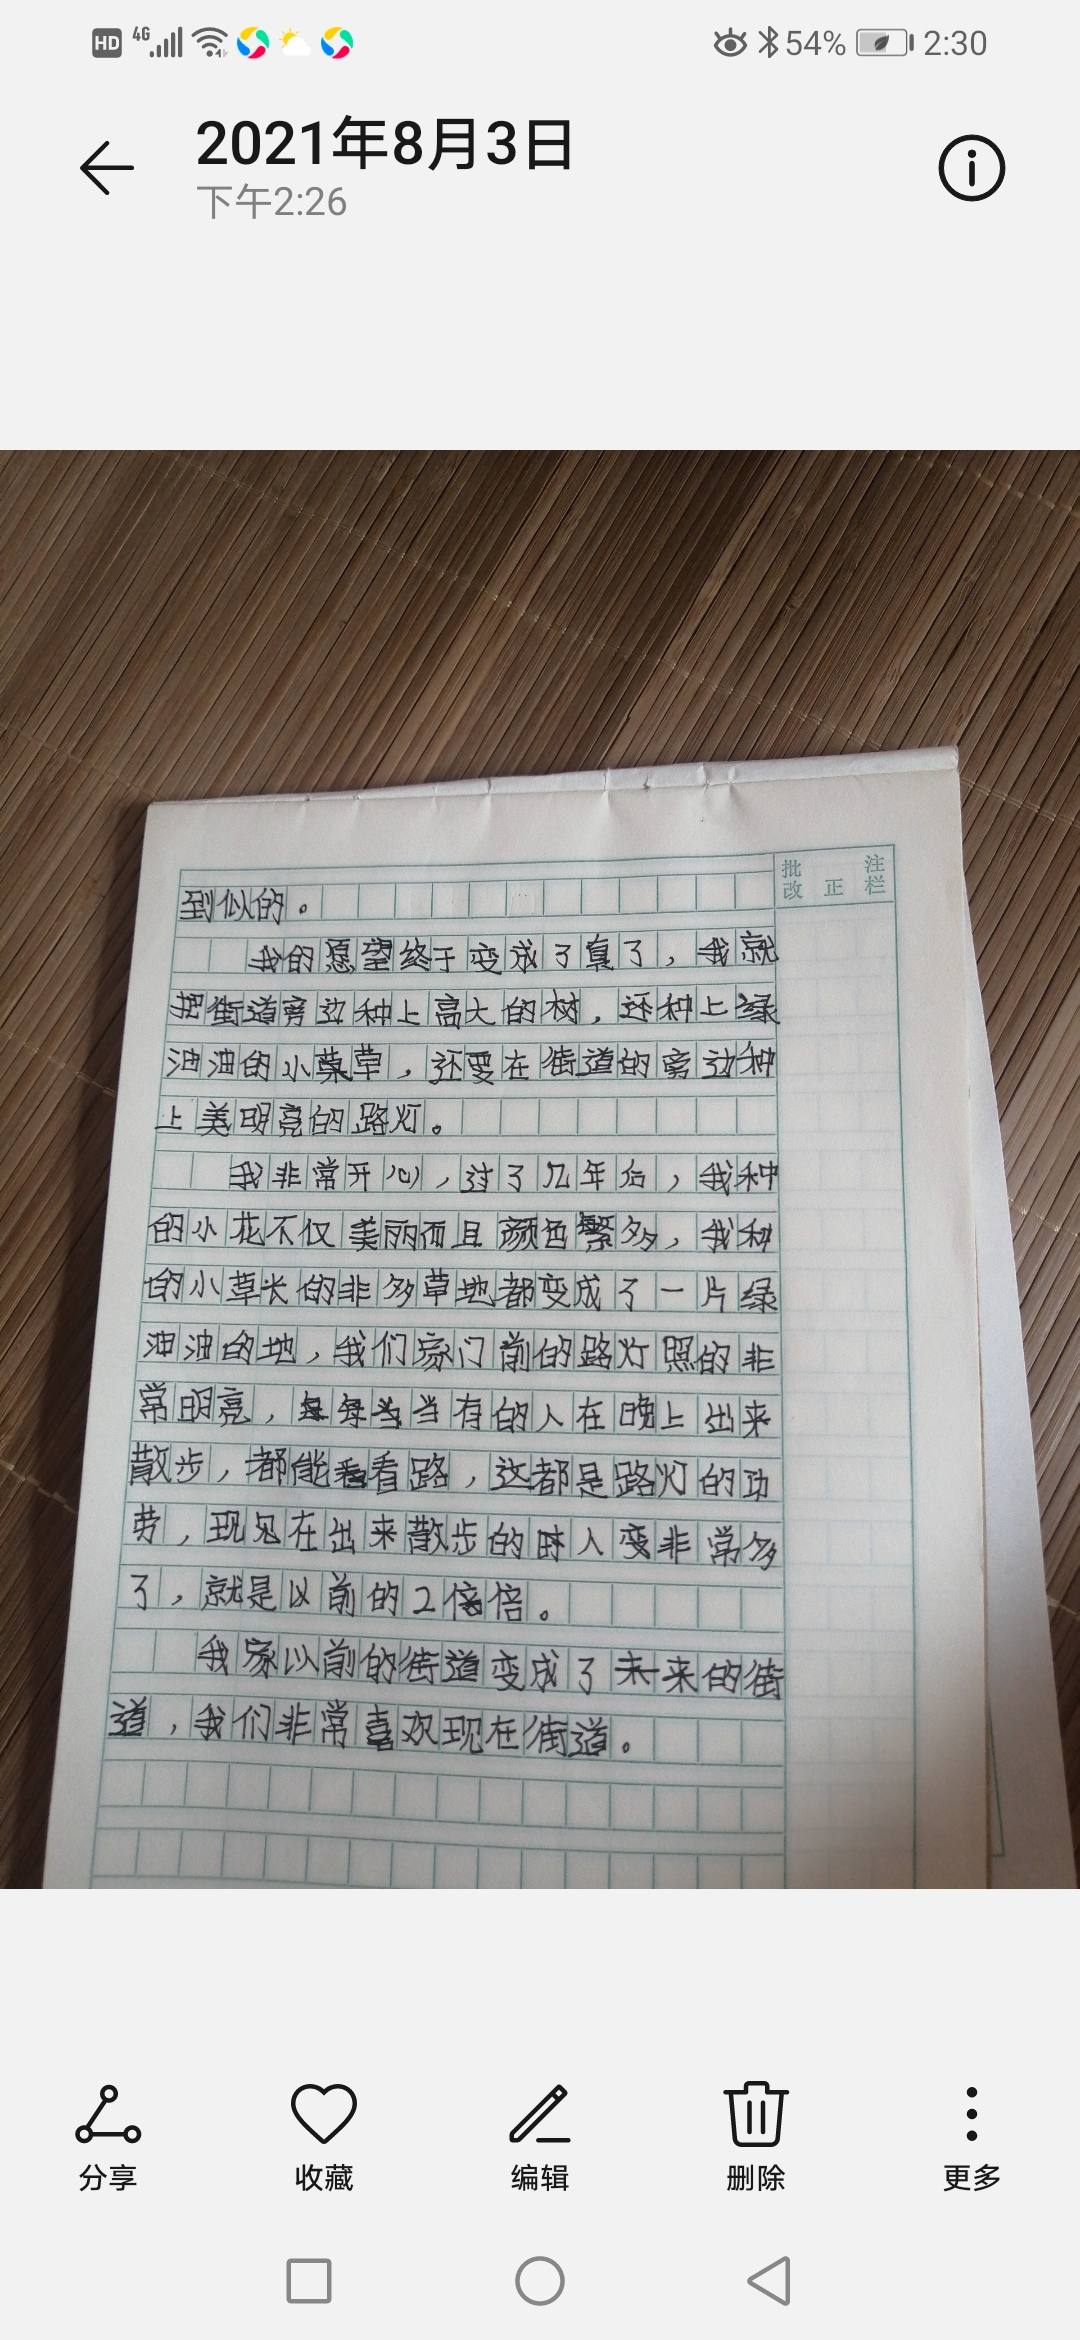 HD 4G 54% 2:30
2021年8月3日
下午2:26
批改 正 注栏
到似的。
我的愿望终于变成了真了，我就
把街道旁边种上高大的树，还种上绿
油油的小草，还要在街道的旁边种
上美明亮的路灯。
我非常开心，过了几年后，我种
的小花不仅美丽而且颜色繁多，我种
的小草长的非多草地都变成了一片绿
油油的地，我们家门前的路灯照的非
常明亮，每当有的人在晚上出来
散步，都能看路，这都是路灯的功
劳，现见在出来散步的时人变非常多
了，就是以前的2倍。
我家以前的街道变成了未来的街
道，我们非常喜欢现在街道。
分享 收藏 编辑 删除 更多